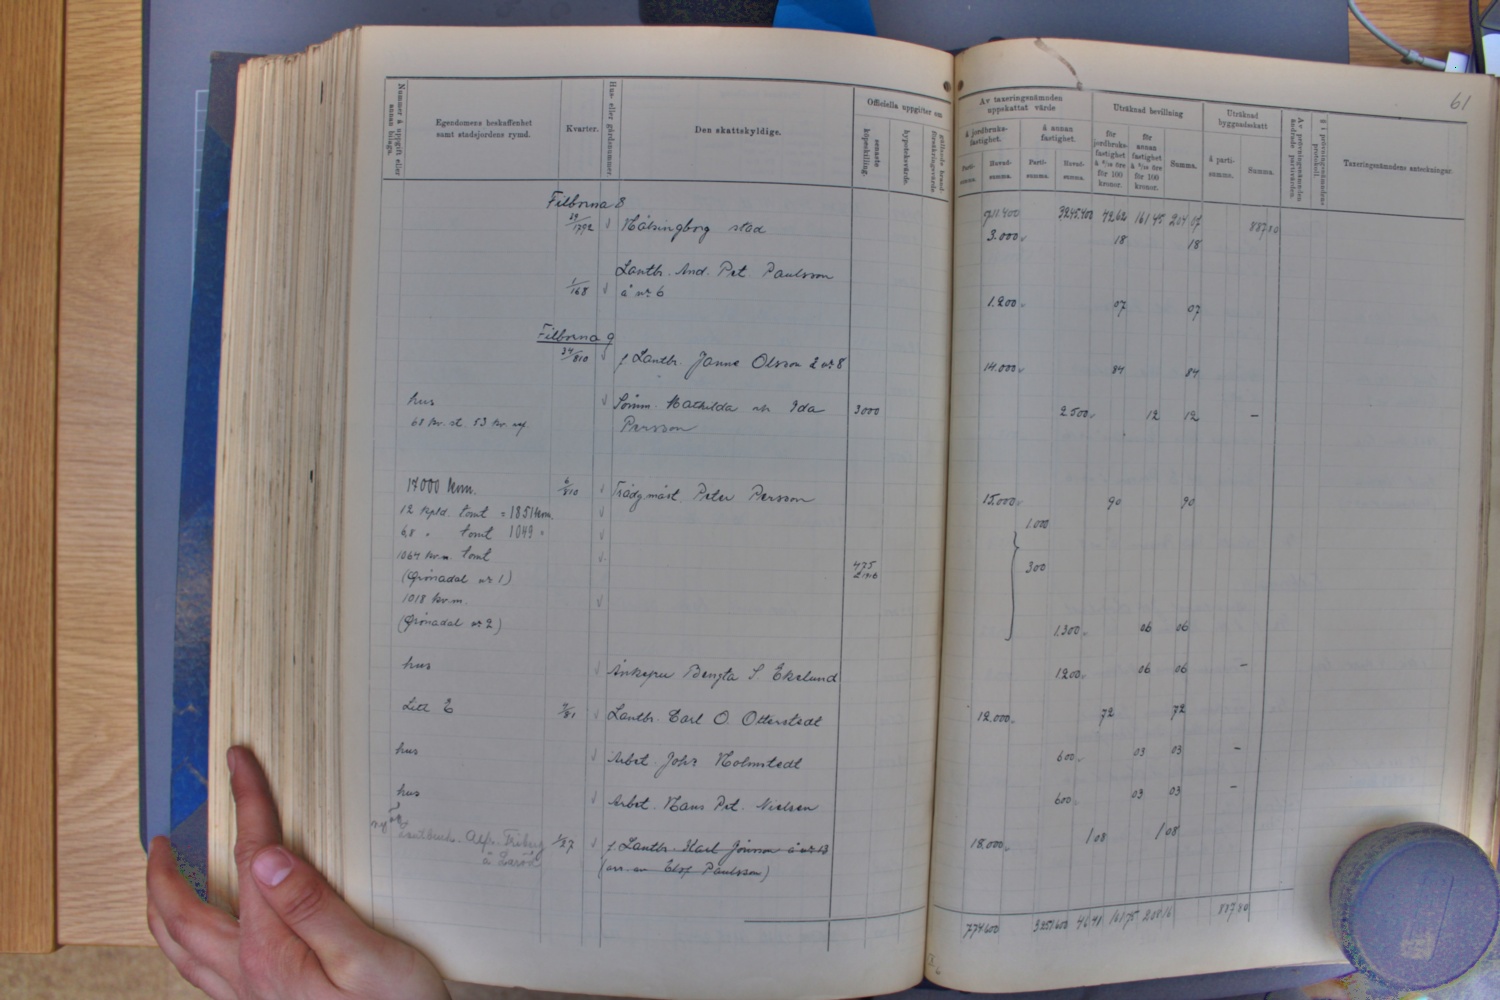 61
Nummer å uppgift eller annan bilaga.
Egendomens beskaffenhet samt stadsjordens rymd.
Kvarter.
Hus- eller gårdsnummer.
Den skattskyldige.
Officiella uppgifter om
senaste köpeskilling.
hypoteksvärde.
gällande brandförsäkringsvärde.
Av taxeringsnämnden uppskattat värde
å jordbruksfastighet.
å annan fastighet.
Partisumma.
Huvudsumma.
Partisumma.
Huvudsumma.
Uträknad bevillning
för jordbruksfastighet à 6/10 öre för 100 kronor.
för annan fastighet à 5/10 öre för 100 kronor.
Summa.
Uträknad byggnadsskatt
å partisumma.
Summa.
Av prövningsnämnden ändrade partivärden.
§ i prövningsnämndens protokoll.
Taxeringsnämndens anteckningar.
Filborna 8
3245.400 161 45 204 07 887 80
Hälsingborg stad 3.000 18 18
Lantbr. And. Pet. Paulsson
1/168 å nr 6 1.200 07 07
Filborna 9
34/810 f. Lantbr. Janne Olsson å nr 8 14.000 84 84
hus Mathilda och Ida 3000 2500 12 12 —
68 kv. st. 53 kv. ref. Persson
17000 kvm. 6/810 Trädg.mäst. Peter Persson 15.000 90 90
12 kpld. tomt = 1851 kvm. 1.000
6,8 " tomt 1049 "
1064 kv.m. tomt
(Grönadal nr 1) 475 300
1018 kv.m.
(Grönadal nr 2) 1.300 06 06
hus Änkefru Bengta S Ekelund 1200 06 06 —
Litt E Lantbr. Carl O. Otterstedt 12.000 72 72
hus Arbet. Johs Holmstedt 600 03 03 —
hus Arbet. Hans Pet. Nielsen 600 03 03 —
Lantbruk. Alfr. Friberg 1/27 f. Lantbr. Karl Jönsson å nr 13 18.000 1 08 1 08
(arr. av Elof Paulsson)
774600 3251600 46 41 161 75 208 16 887 80